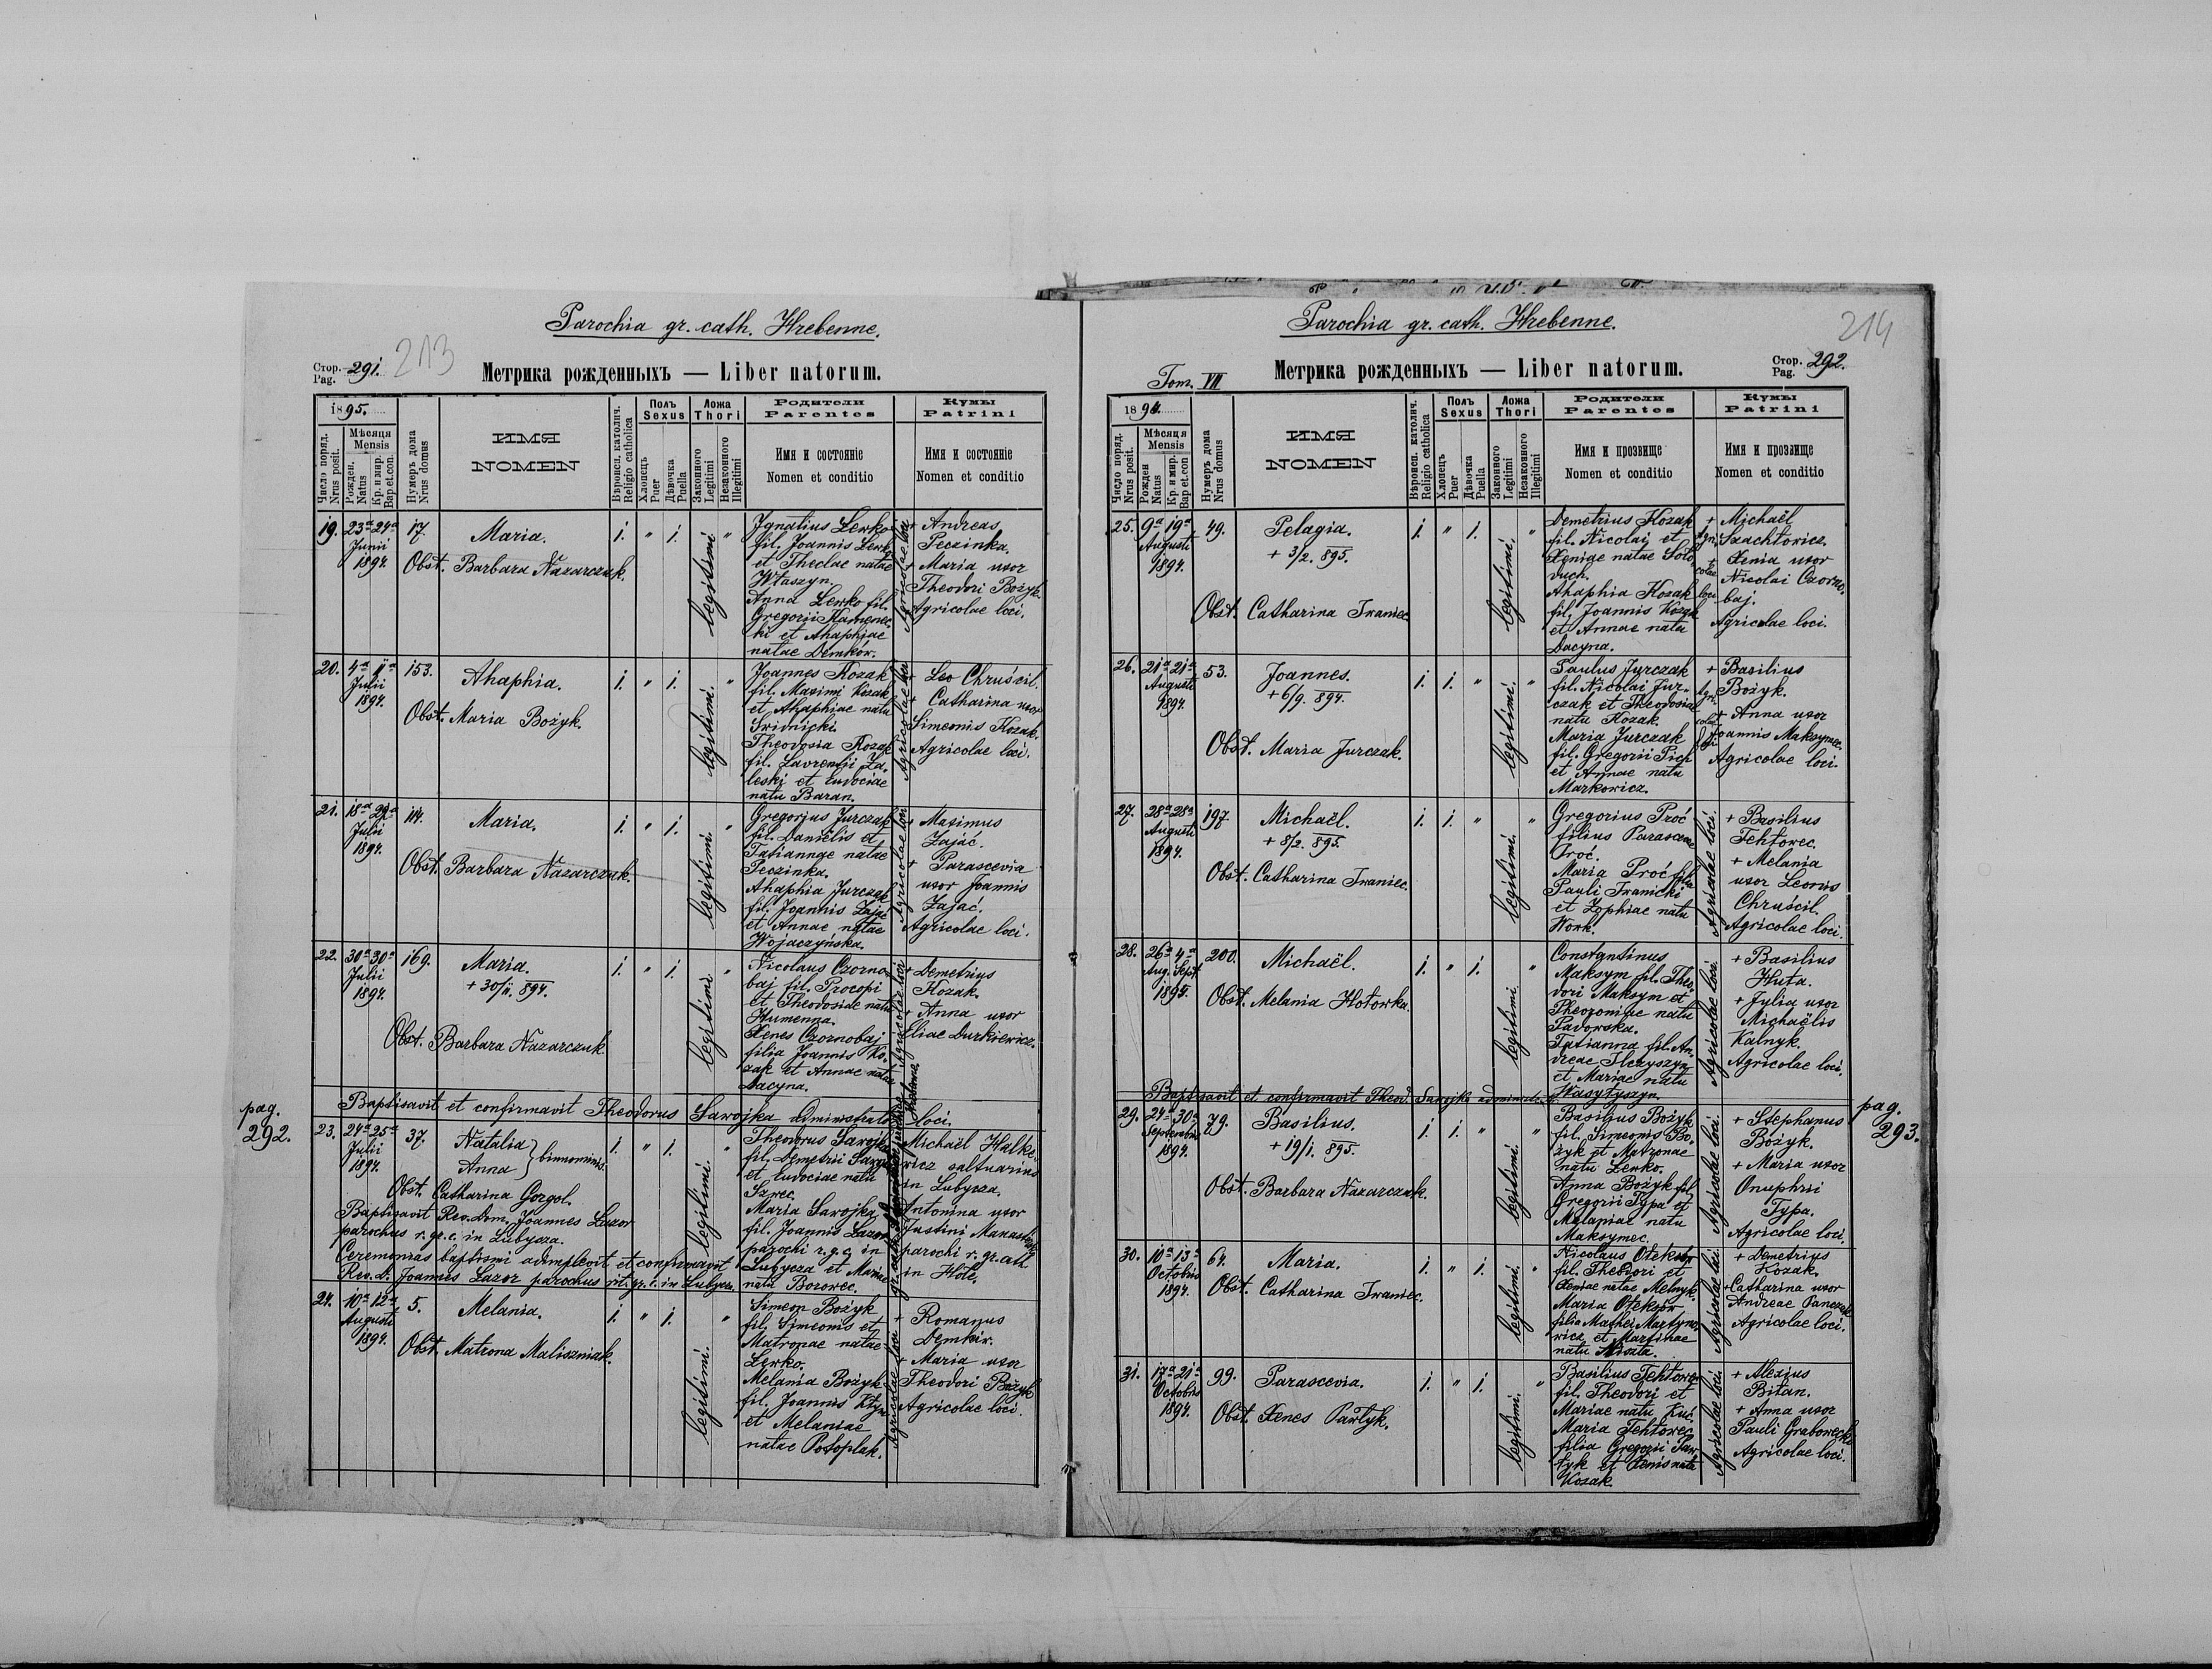 Parochia gr. cath. Hrebenne.
213
Стор. Pag. 291.
Метрика рожденныхъ — Liber natorum.
1895.
Число поряд. Nrus posit.
Мѣсяця Mensis
Рожден. Natus
Кр. и мир. Bap et. con.
Нумеръ дома Nrus domus
ИМЯ
NOMEN
Вѣроисп. католич. Religio catholica
Полъ Sexus
Хлопецъ Puer
Дѣвочка Puella
Ложа Thori
Законного Legitimi
Незаконного Illegitimi
Родители
Parentes
Имя и состоянiе
Nomen et conditio
Кумы
Patrini
Имя и состоянiе
Nomen et conditio
19. 23a 24a Junii 1894. 17. Maria. 1. " 1. legitimi "
Obst. Barbara Nazarczuk.
Ignatius Lewko
fil. Joannis Lewko
et Theclae natae
Właszyn.
Anna Lewko fil.
Gregorii Kamenec-
ki et Ahaphiae
natae Demków.
Agricolae loci
+ Andreas
Peczinka.
+ Maria uxor
Theodori Bożyk.
Agricolae loci.
20. 4a 11a Julii 1894. 153. Ahaphia. 1. " 1. legitimi. "
Obst. Maria Bożyk.
Joannes Kozak
fil. Maximi Kozak
et Ahaphiae natu
Sridnicki.
Theodosia Kozak
fil. Laurentii Za-
leski et Eudociae
natu Baran.
Agricolae loci
+ Leo Chruścil.
+ Catharina uxor
Simeonis Kozak.
Agricolae loci.
21. 18a 22a Julii 1894. 114. Maria. 1. " 1. legitimi. "
Obst. Barbara Nazarczuk.
Gregorius Jurczak
fil. Danielis et
Tatiannae natae
Peczinka.
Ahaphia Jurczak
fil. Joannis Zając
et Annae natae
Wojaczyńska.
Agricolae loci
+ Maximus
Zajác.
+ Parascevia
uxor Joannis
Zajać.
Agricolae loci.
22. 30a 30a Julii 1894. 169. Maria. 1. " 1. legitimi "
+ 30/11. 894.
Obst. Barbara Nazarczuk.
Nicolaus Czorno-
baj fil. Procopi
et Theodosiae natu
Humenna.
Xenes Czornobaj
filia Joannis Ko-
zak et Annae natu
Dacyna.
Agricolae loci
+ Demetrius
Kozak.
+ Anna uxor
Eliae Durkiewicz.
Baptisavit et confirmavit Theodorus Sawojka administrator loci.
pag.
292.
23. 24a 25a Julii 1894. 37. Natalia Anna } binnominis. 1. " 1. legitimi. "
Obst. Catharina Gorgol.
Baptisavit Rev. Dom. Joannes Lazor
parochus r. gr. c. in Lubycza.
Ceremonias baptismi adimplevit et confirmavit
Rev. d. Joannes Lazor parochus rit. gr. c. in Lubycza.
Theodorus Sawojka
fil. Demetrii Sawojka
et Eudociae natu
Szwec.
Maria Sawojka
fil. Joannis Lazor
parochi r. g. c. in
Lubycza et Mariae
natu Borowec.
Michaël Halke-
wicz saltuarius
in Lubycza.
Antonina uxor
Justini
parochi r. gr. cath
in Hole.
24. 10a 12a Augusti 1894. 5. Melania. 1. " 1. legitimi. "
Obst. Matrona Maliszniak.
Simeon Bożyk
fil. Simeonis et
Matronae natae
Lewko.
Melania Bożyk
fil. Joannis Klym
et Melaniae
natae Potoplak.
Agricolae loci
+ Romanus
Demkiw.
+ Maria uxor
Theodori Bożyk
Agricolae loci.
Parochia gr. cath. Hrebenne.
214
Tom. VII
Метрика рожденныхъ — Liber natorum.
Стор. Pag. 292.
1894.
Число поряд. Nrus posit.
Мѣсяця Mensis
Рожден Natus
Кр. и мир. Bap et. con
Нумеръ дома Nrus domus
ИМЯ
NOMEN
Вѣроисп. католич. Religio catholica
Полъ Sexus
Хлопецъ Puer
Дѣвочка Puella
Ложа Thori
Законного Legitimi
Незаконного Illegitimi
Родители
Parentes
Имя и прозвище
Nomen et conditio
Кумы
Patrini
Имя и прозвище
Nomen et conditio
25. 9a 19a Augusti 1894. 49. Pelagia. 1. " 1. legitimi. "
+ 3/2. 895.
Obst. Catharina Iwaniec.
Demetrius Kozak
fil. Nicolai et
Xeniae natae Soło-
duch.
Ahaphia Kozak
fil. Joannis Kozak
et Annae natu
Dacyna.
Agricolae loci
+ Michaël
Szachtowicz.
Xenia uxor
Nicolai Czorno-
baj.
Agricolae loci.
26. 21a 21a Augusti 1894. 53. Joannes. 1. 1. " legitimi. "
+ 6/9. 894.
Obst. Maria Jurczak.
Paulus Jurczak
fil. Nicolai Jur-
czak et Theodosiae
natu Kozak.
Maria Jurczak
fil. Gregorii Pich
et Annae natu
Markowicz.
+ Basilius
Bożyk.
+ Anna uxor
Joannis Maksymec.
Agricolae loci.
27. 28a 28a Augusti 1894. 197. Michaël. 1. 1. " legitimi. "
+ 8/2. 895.
Obst. Catharina Iwaniec.
Gregorius Proć
filius Parasceviae
Proć.
Maria Proć filia
Pauli Iwanicki
et Zophiae natu
Work.
Agricolae loci.
+ Basilius
Tehtowec.
+ Melania
uxor Leonis
Chruścil.
Agricolae loci.
28. 26a 4a Aug. Sept. 1895. 200. Michaël. 1. " 1. legitimi "
Obst. Melania Hotowka.
Constantinus
Maksym fil. Theo-
dori Maksym et
Pheozoniae natu
Padowska.
Tatianna fil. An-
dreae Ilczyszyn
et Mariae natu
Wasylyszyn.
Agricolae loci
+ Basilius
Huta.
+ Julia uxor
Michaëlis
Kalnyk.
Agricolae loci.
Baptisavit et confirmavit Theod. Sawojka administr.
pag.
293.
29. 27a 30a Septembris 1894. 79. Basilius. 1. 1. " legitimi. "
+ 19/1. 895.
Obst. Barbara Nazarczuk.
Basilius Bożyk
fil. Simeonis Bo-
żyk et Matronae
natu Lewko.
Anna Bożyk fil.
Gregorii Typa et
Melaniae natu
Maksymec.
Agricolae loci.
+ Stephanus
Bożyk.
+ Maria uxor
Onuphrii
Typa.
Agricolae loci.
30. 10a 13a Octobris 1894. 64. Maria. 1. " 1. legitimi. "
Obst. Catharina Iwaniec.
Nicolaus Oteksów
fil. Theodori et
Xeniae natae Melnyk.
Maria Oteksów
filia Mathei Martyno-
wicz et Marthae
natu Niszta.
Agricolae loci.
+ Demetrius
Kozak.
+ Catharina uxor
Andreae Panczak
Agricolae loci.
31. 17a 21a Octobris 1894. 99. Parascevia. 1. " 1. legitimi. "
Obst. Xenes Pawlyk.
Basilius Tehtowec
fil. Theodori et
Mariae natu Kuć.
Maria Tehtowec
filia Gregorii Paw-
lyk et Xenis natu
Kozak.
Agricolae loci.
+ Alexius
Bitan.
+ Anna uxor
Pauli Grabowecki
Agricolae loci.